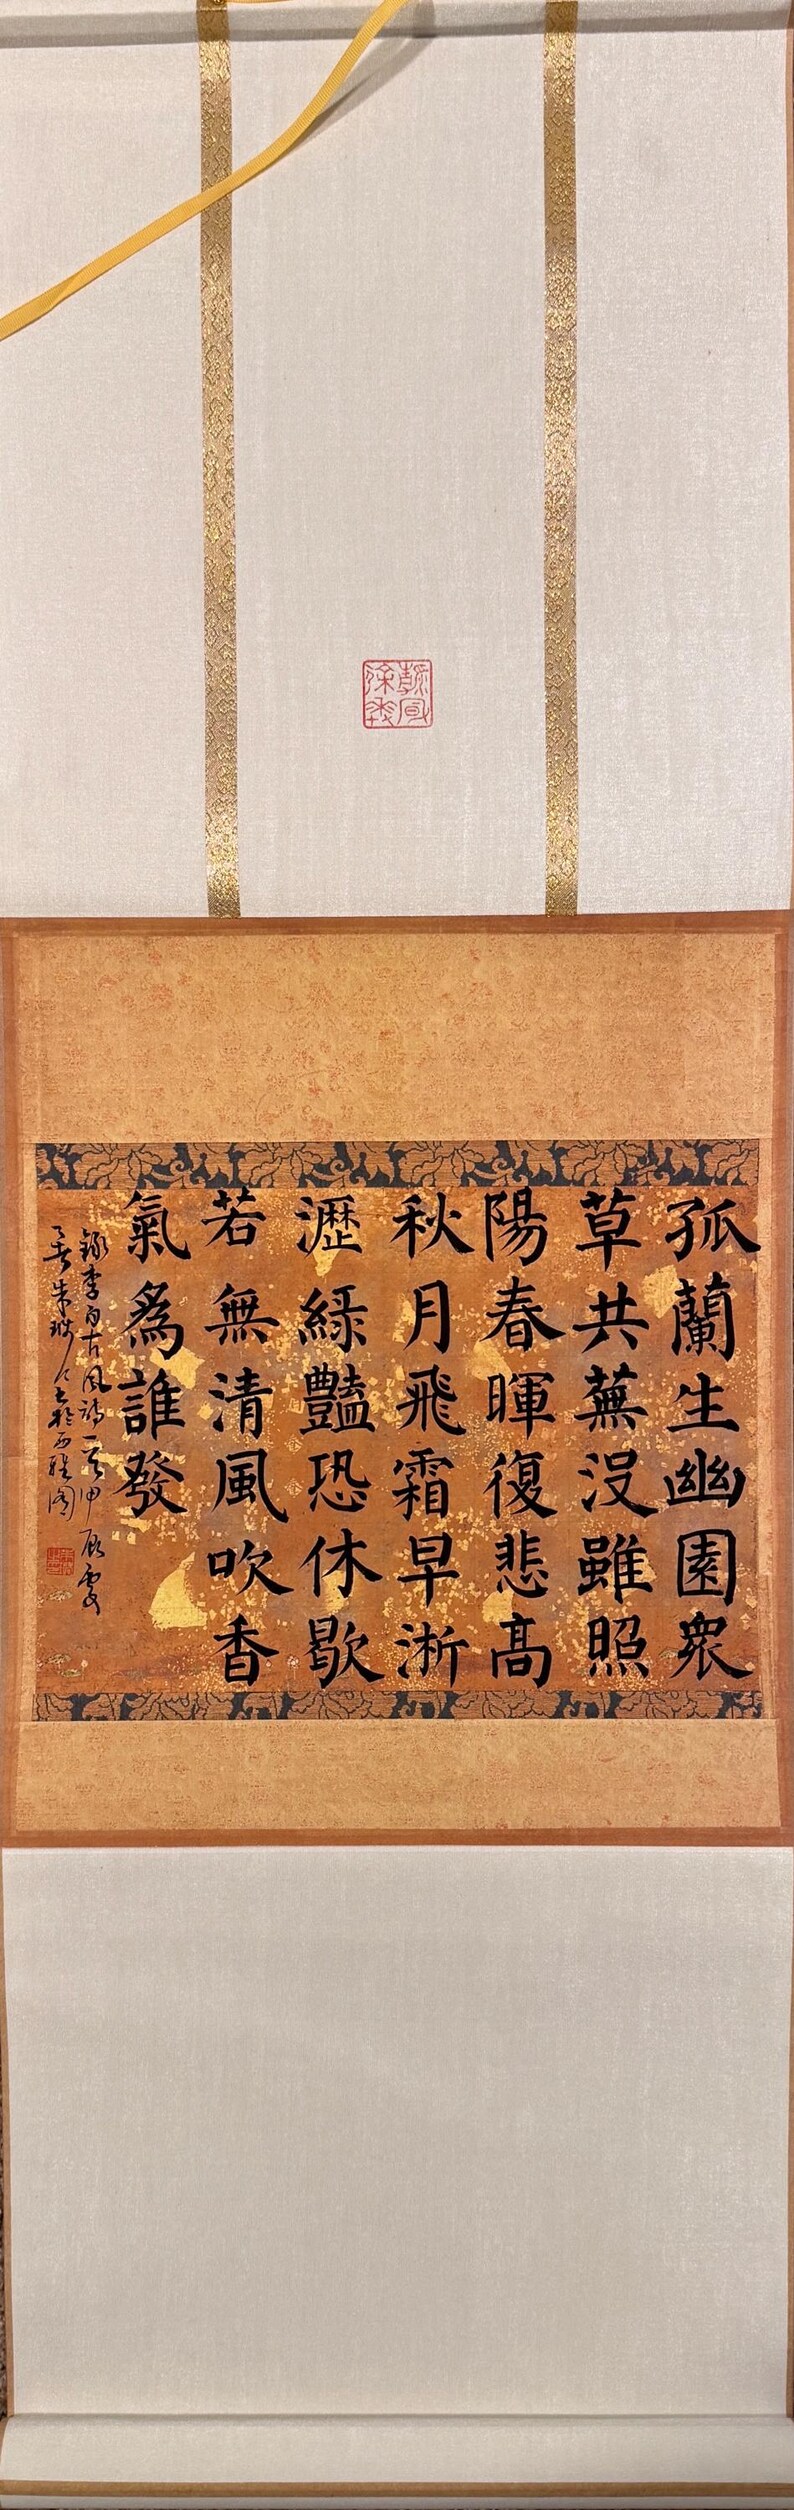 孤蘭生幽園衆
草共蕪沒雖照
陽春暉復悲高
秋月飛霜早淅
瀝綠豔恐休歇
若無清風吹香
氣為誰發
錄李白古風詩一首甲辰夏